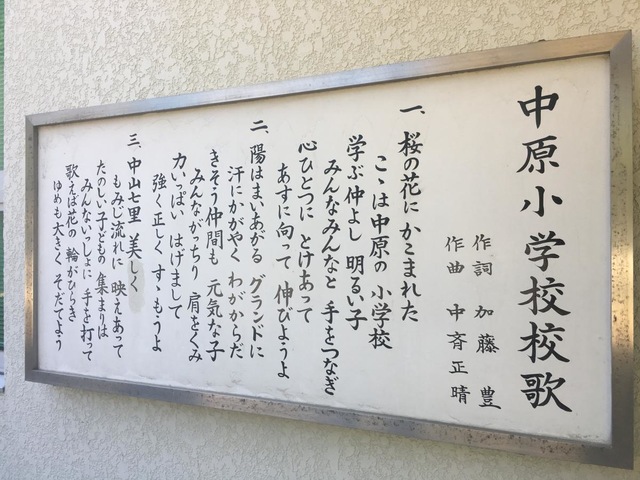 中原小学校校歌
作詞 加藤 豊
作曲 中斉正晴
一、桜の花に かこまれた
こゝは中原の 小学校
学ぶ仲よし 明るい子
みんなみんなと 手をつなぎ
心ひとつに とけあって
あすに向って 伸びようよ
二、陽はまいあがる グランドに
汗にかがやく わがからだ
きそう仲間も 元気な子
みんながっちり 肩をくみ
力いっぱい はげまして
強く正しく すゝもうよ
三、中山七里 美しく
もみじ流れに 映えあって
たのしい子どもの 集まりは
みんないっしょに 手を打って
歌えば花の 輪がひらき
ゆめも大きく そだてよう